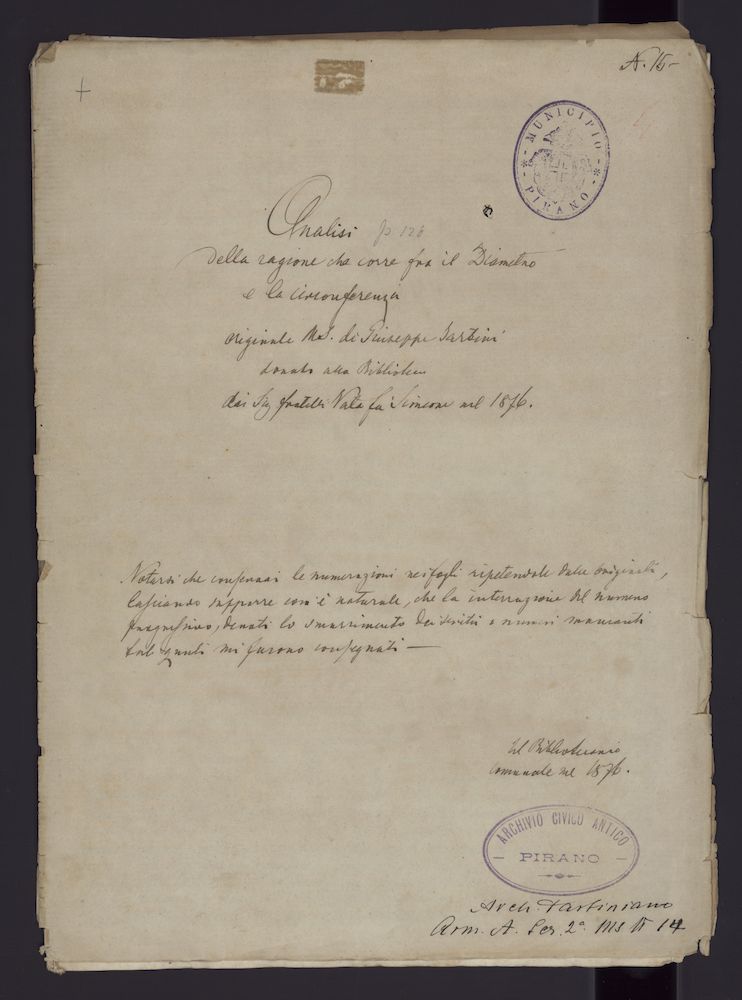 N. 15-
MUNICIPIO
PIRANO
Analisi p 126
della ragione che corre fra il Diametro
e la circonferenza
originale MS. di Giuseppe Tartini
donato alla Biblioteca
dai Sig fratelli Vatta fu Simeone nel 1876.
Notarsi che conservai le numerazioni nei fogli ripetendole dalle originali,
lasciando supporre com'è naturale, che la interruzione del numero
progressivo, denoti lo smarrimento dei scritti e numeri mancanti
tal quali mi furono consegnati —
Il Bibliotecario
comunale nel 1876.
ARCHIVIO CIVICO ANTICO
PIRANO
Arch. Tartiniano
Arm. A. Scr. 2ª Ms N 14